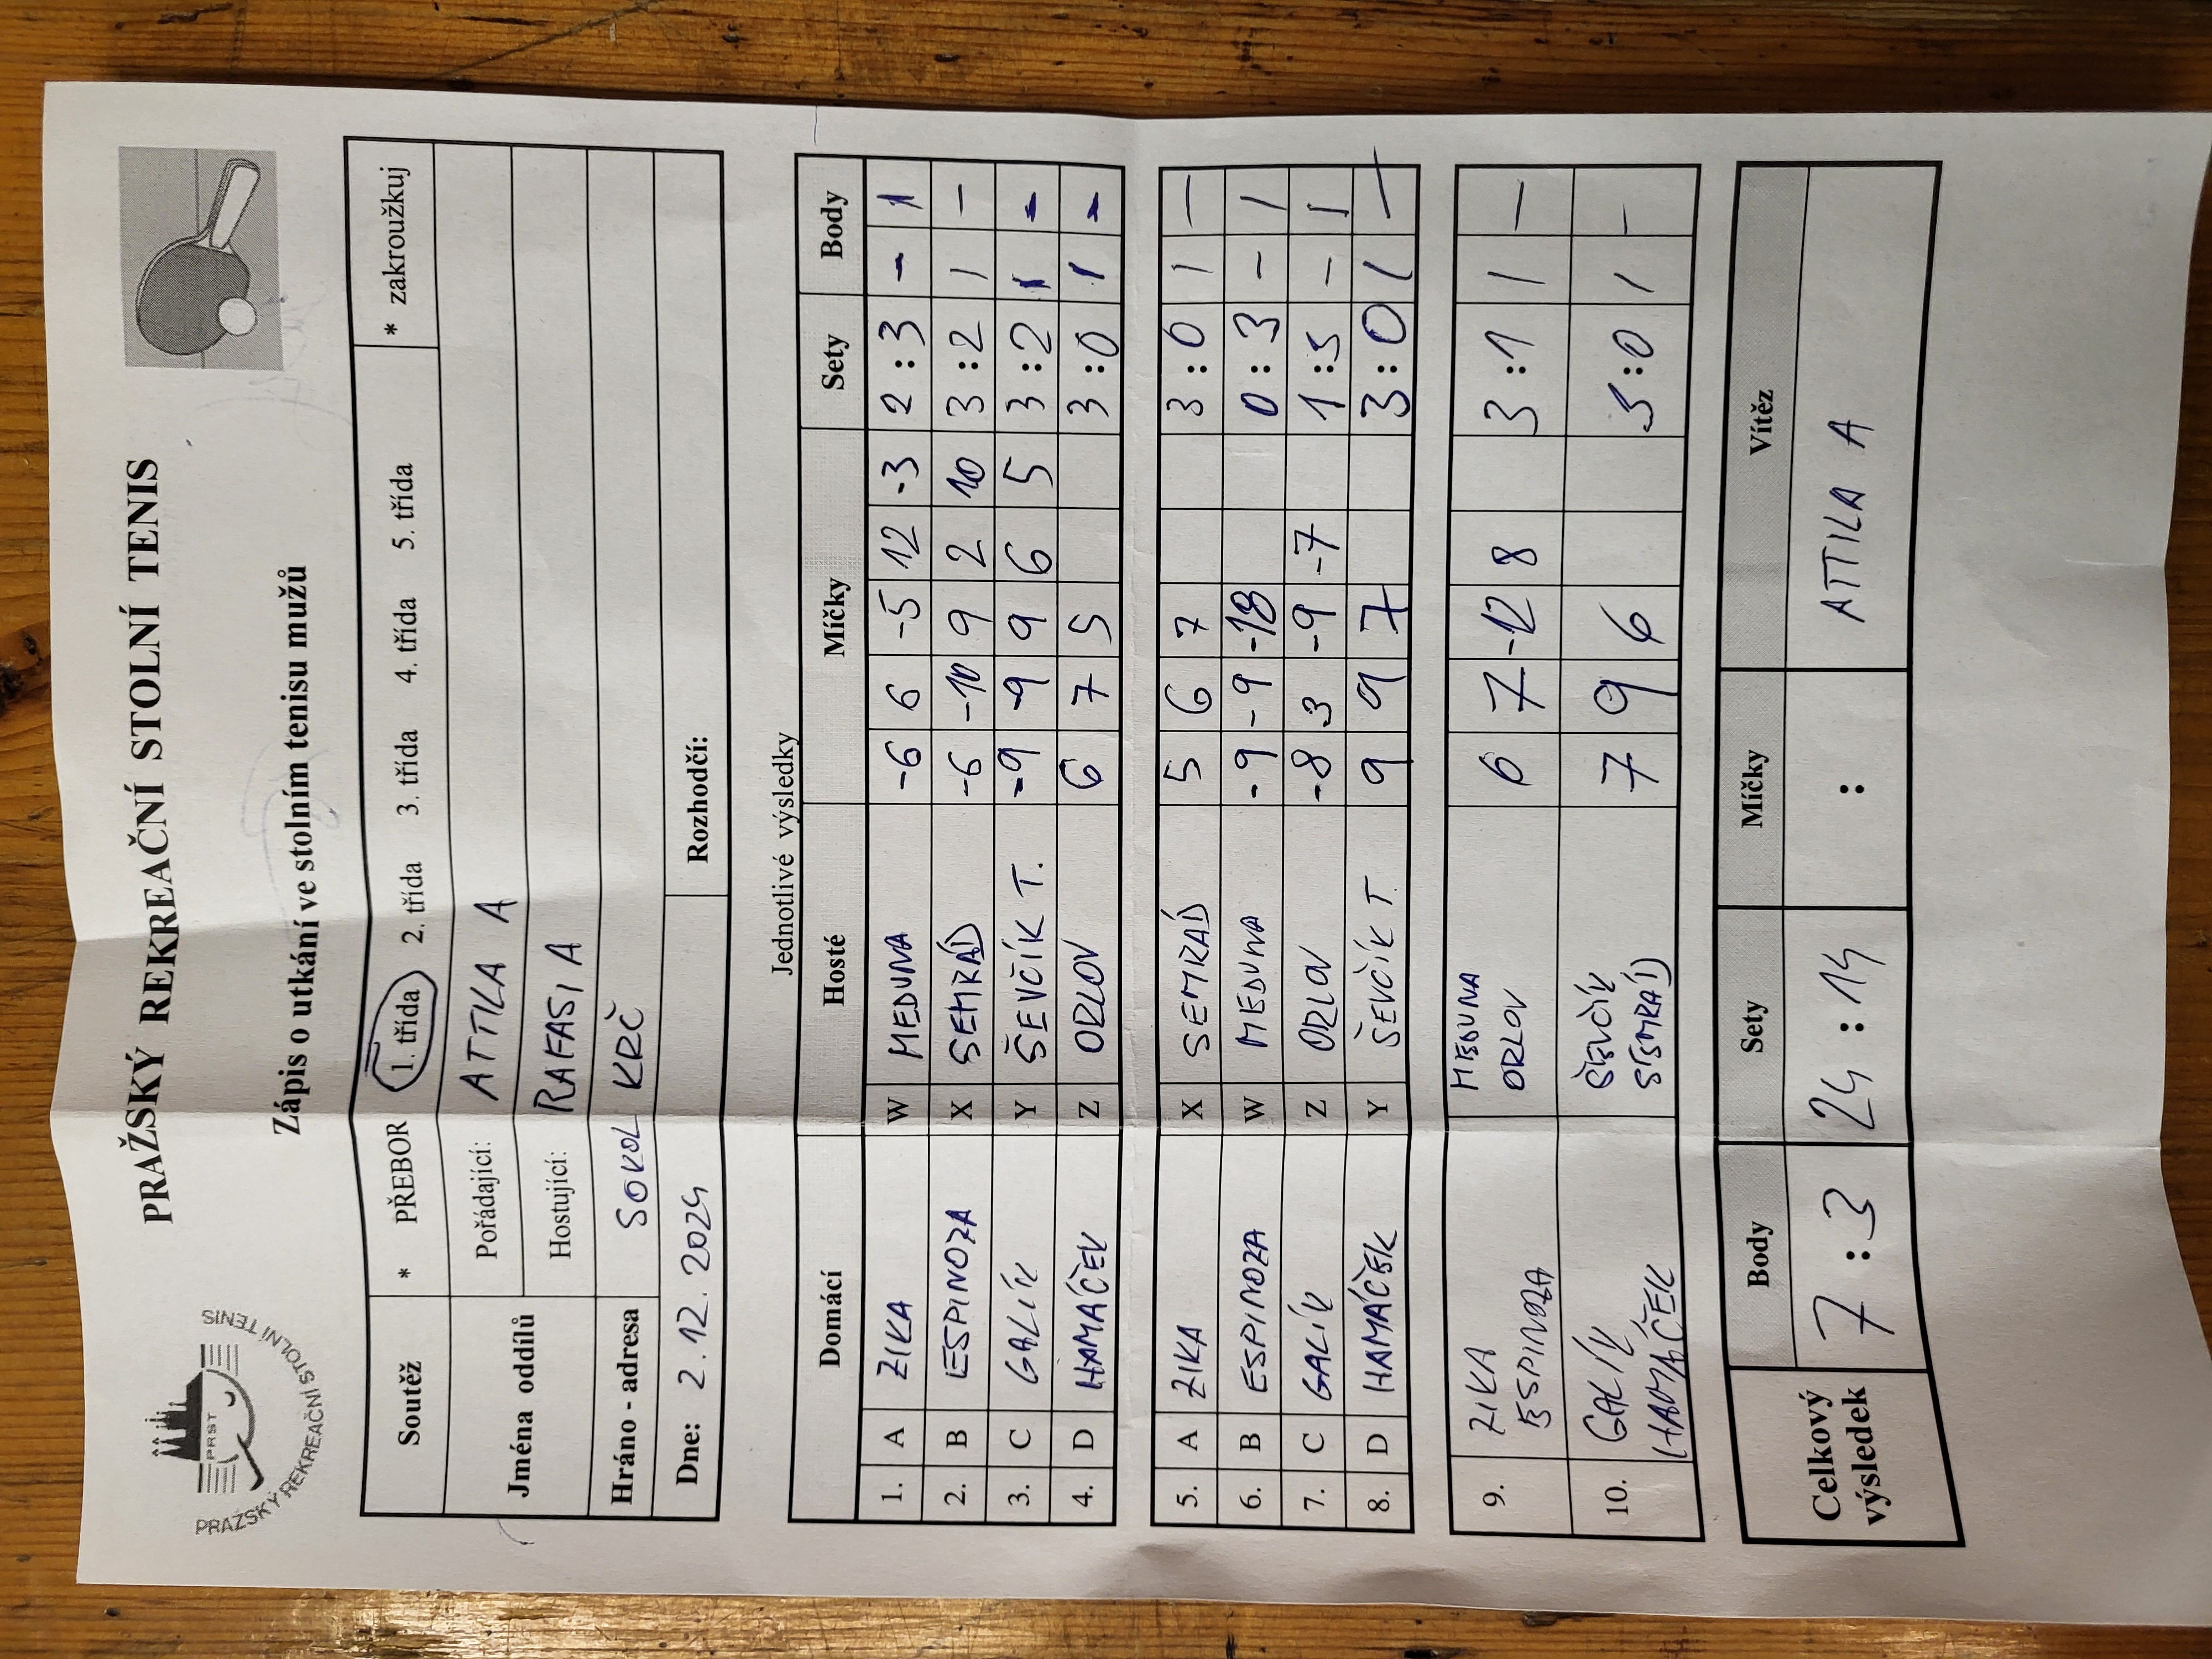 PRAŽSKÝ REKREAČNÍ STOLNÍ TENIS
PRST
PRAŽSKÝ REKREAČNÍ STOLNÍ TENIS
Zápis o utkání ve stolním tenisu mužů
Soutěž * PŘEBOR 1. třída 2. třída 3. třída 4. třída 5. třída * zakroužkuj
Jména oddílů Pořádající: ATTILA A
Hostující: RAFASI A
Hráno - adresa SOKOL KRČ
Dne: 2.12.2024 Rozhodčí:
Jednotlivé výsledky
Domácí Hosté Míčky Sety Body
1. A ZIKA W MEDUNA -6 6 -5 12 -3 2 : 3 - 1
2. B ESPINOZA X SEMRÁD -6 -10 9 2 10 3 : 2 1 -
3. C GALÍK Y ŠEVČÍK T. -9 -9 9 6 5 3 : 2 1 -
4. D HAMÁČEK Z ORLOV 6 7 5 3 : 0 1 -
5. A ZIKA X SEMRÁD 5 6 7 3 : 0 1 -
6. B ESPINOZA W MEDUNA -9 -9 -18 0 : 3 - 1
7. C GALÍK Z ORLOV -8 3 -9 -7 1 : 3 - 1
8. D HAMÁČEK Y ŠEVČÍK T 9 9 7 3 : 0 1 -
9. ZIKA MEDUNA 6 7 -12 8 3 : 1 1 -
ESPINOZA ORLOV
10. GALÍK ŠEVČÍK 7 9 6 3 : 0 1 -
HAMÁČEK SEMRÁD
Celkový výsledek Body Sety Míčky Vítěz
7 : 3 24 : 14 : ATTILA A